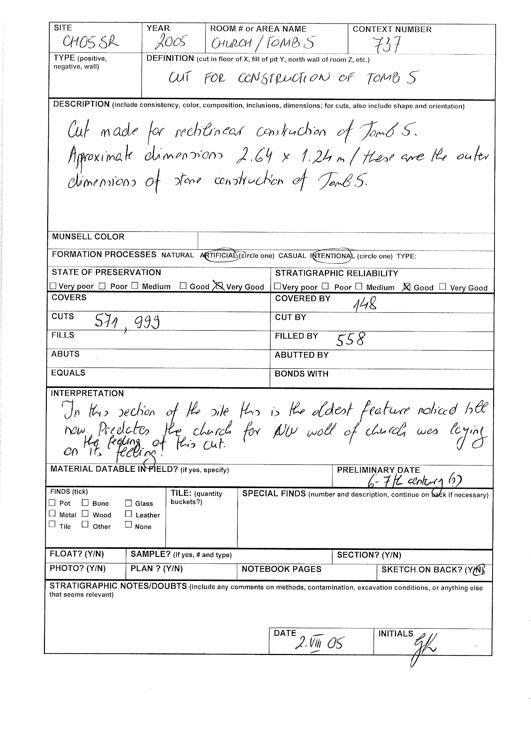 SITE YEAR ROOM # or AREA NAME CONTEXT NUMBER
CH05SR 2005 CHURCH / TOMB 5 737
TYPE (positive, negative, wall) DEFINITION (cut in floor of X, fill of pit Y, north wall of room Z, etc.)
CUT FOR CONSTRUCTION OF TOMB 5
DESCRIPTION (include consistency, color, composition, inclusions, dimensions; for cuts, also include shape and orientation)
Cut made for rectilinear construction of Tomb 5.
Aproximate dimensions 2.64 x 1.24 m / these are the outer
dimensions of stone construction of Tomb 5.
MUNSELL COLOR
FORMATION PROCESSES NATURAL ARTIFICIAL (circle one) CASUAL INTENTIONAL (circle one) TYPE:
STATE OF PRESERVATION STRATIGRAPHIC RELIABILITY
Very poor Poor Medium Good Very Good Very poor Poor Medium Good Very Good
COVERS COVERED BY 148
CUTS 571, 999 CUT BY
FILLS FILLED BY 558
ABUTS ABUTTED BY
EQUALS BONDS WITH
INTERPRETATION
In this section of the site this is the oldest feature noticed till
now. Predates the church for NW wall of church was laying
on the of this cut.
on its
MATERIAL DATABLE IN FIELD? (if yes, specify) PRELIMINARY DATE
6-7th century (?)
FINDS (tick) TILE: (quantity buckets?) SPECIAL FINDS (number and description, continue on back if necessary)
Pot Bone Glass
Metal Wood Leather
Tile Other None
FLOAT? (Y/N) SAMPLE? (if yes, # and type) SECTION? (Y/N)
PHOTO? (Y/N) PLAN ? (Y/N) NOTEBOOK PAGES SKETCH ON BACK? (Y/N)
STRATIGRAPHIC NOTES/DOUBTS (include any comments on methods, contamination, excavation conditions, or anything else
that seems relevant)
DATE 2.VIII 05 INITIALS